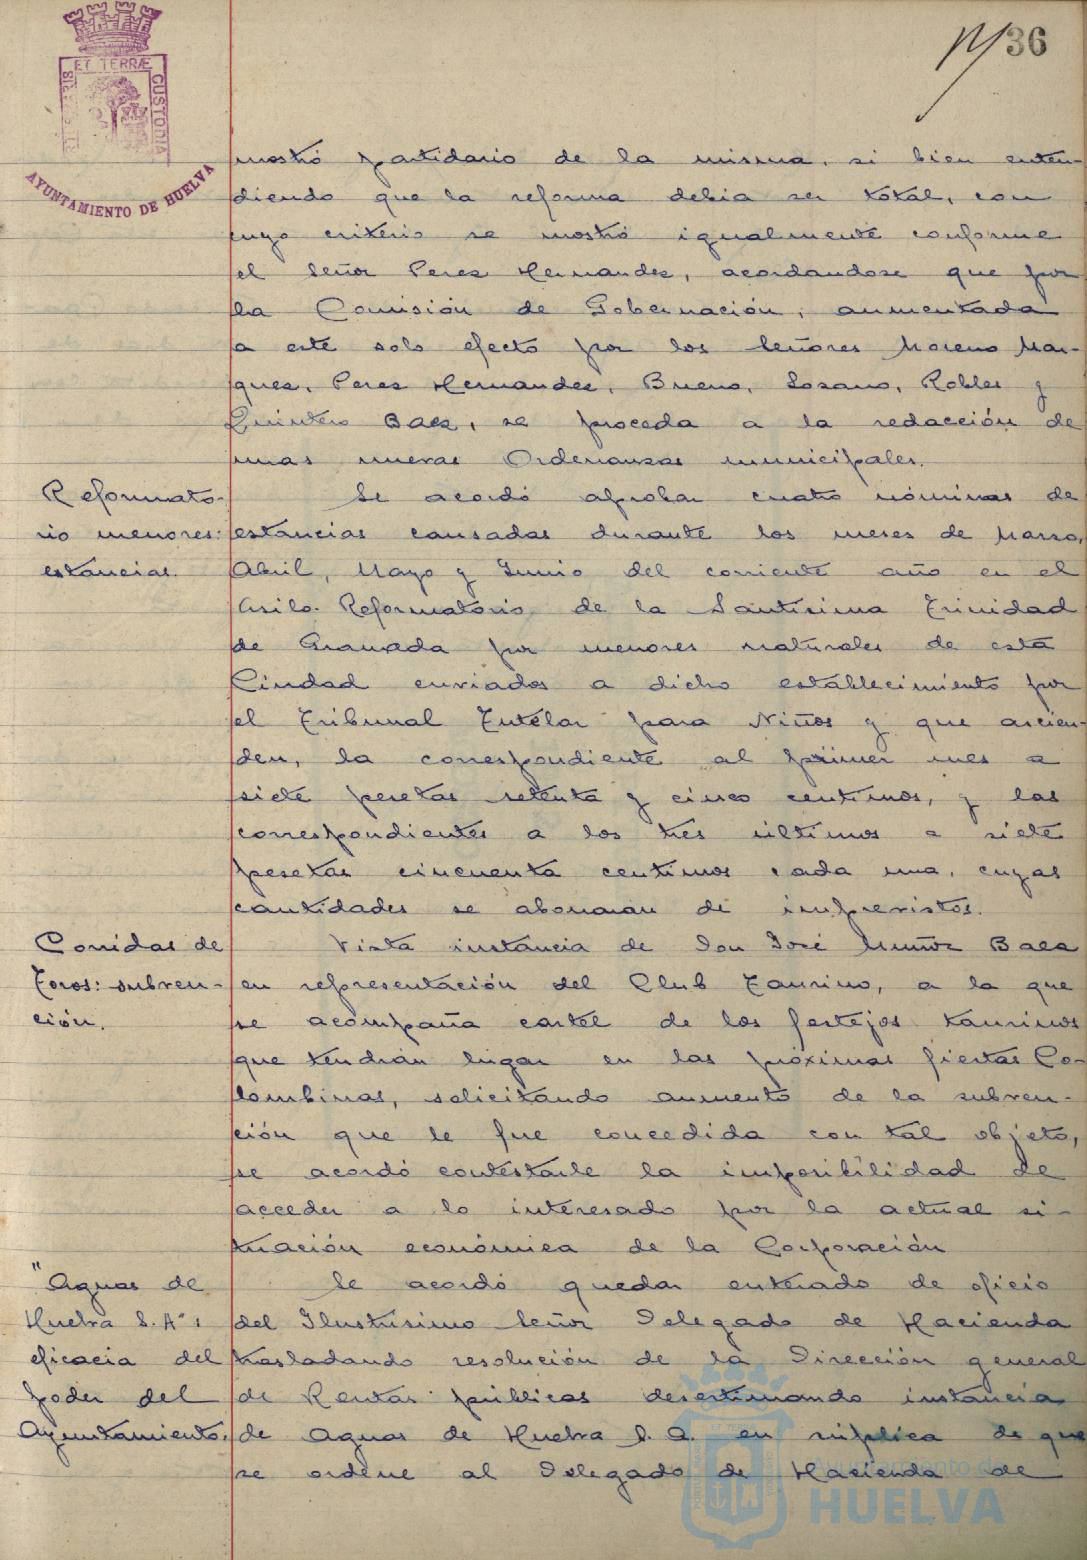 36
ET TERRÆ
CUSTODIA
AYUNTAMIENTO DE HUELVA
mostró partidario de la misma, si bien enten-
diendo que la reforma debia ser total, con
cuyo criterio se mostró igualmente conforme
el Señor Perez Hernandez, acordandose que por
la Comisión de Gobernación, aumentada
a este solo efecto por los Señores Moreno Mar-
quez, Perez Hernandez, Bueno, Lozano, Robles y
Quintero Baez, se proceda a la redacción de
unas nuevas Ordenanzas municipales.
Reformato-
rio menores:
estancias.
Se acordó aprobar cuatro nóminas de
estancias causadas durante los meses de Marzo,
Abril, Mayo y Junio del corriente año en el
Asilo-Reformatorio de la Santísima Trinidad
de Granada por menores naturales de esta
Ciudad enviados a dicho establecimiento por
el Tribunal Tutelar para Niños y que ascien-
den, la correspondiente al primer mes a
siete pesetas setenta y cinco centimos, y las
correspondientes a los tres últimos a siete
pesetas cincuenta centimos cada una, cuyas
cantidades se abonarán de imprevistos.
Corridas de
Toros: subven-
ción.
Vista instancia de Don José Muñoz Baez
en representación del Club Taurino, a la que
se acompaña cartel de los festejos taurinos
que tendrán lugar en las próximas fiestas Co-
lombinas, solicitando aumento de la subven-
ción que le fue concedida con tal objeto,
se acordó contestarle la imposibilidad de
acceder a lo interesado por la actual si-
tuación económica de la Corporación
"Aguas de
Huelva S.A":
eficacia del
poder del
Ayuntamiento.
Se acordó quedar enterado de oficio
del Ilustrisimo Señor Delegado de Hacienda
trasladando resolución de la Dirección general
de Rentas públicas desestimando instancia
de Aguas de Huelva S.A. en súplica de que
se ordene al Delegado de Hacienda de
Ayuntamiento de
HUELVA